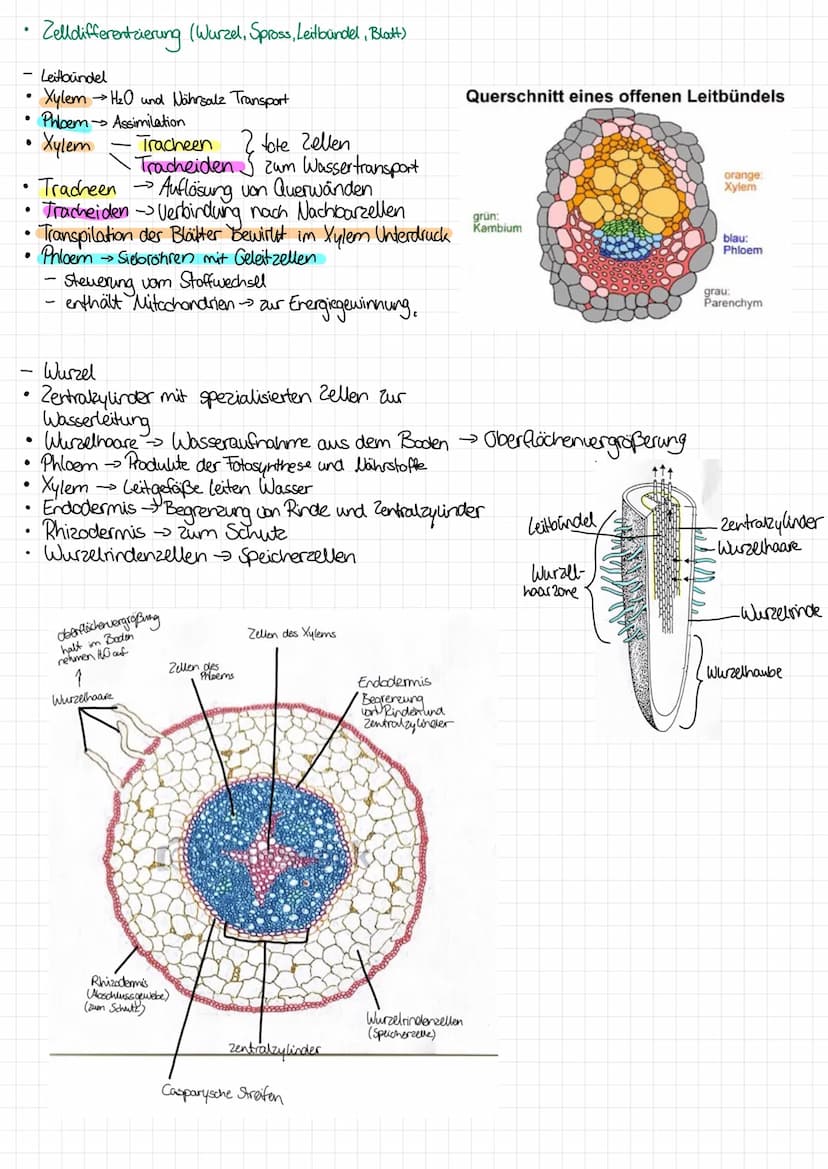 • Zelldifferentzierung (Wurzel, Spross, Leitbündel, Blatt)
– Leitbündel
• Xylem → H₂O und Nährsalz Transport
• Phloem → Assimilation
• Xylem — Tracheen } tote Zellen
\ Tracheiden } zum Wassertransport
• Tracheen → Auflösung von Querwänden
• Tracheiden → Verbindung nach Nachbarzellen
• Transpilation der Blätter bewirkt im Xylem Unterdruck
• Phloem → Siebröhren mit Geleitzellen
– Steuerung vom Stoffwechsell
– enthält Mitochondrien → zur Energiegewinnung.
Querschnitt eines offenen Leitbündels
orange:
Xylem
grün:
Kambium
blau:
Phloem
grau:
Parenchym
– Wurzel
• Zentralzylinder mit spezialisierten Zellen zur
Wasserleitung
• Wurzelhaare → Wasseraufnahme aus dem Boden → Oberflächenvergrößerung
• Phloem → Produkte der Fotosynthese und Nährstoffe
• Xylem → Leitgefäße leiten Wasser
• Endodermis → Begrenzung von Rinde und Zentralzylinder
• Rhizodermis → zum Schutz
• Wurzelrindenzellen → Speicherzellen
Leitbündel
Zentralzylinder
Wurzelhaare
Wurzel-
haarzone
Wurzelrinde
Wurzelhaube
Oberflächenvergrößerung
halt im Boden
nehmen H₂O auf
↑
Wurzelhaare
Zellen des
Phloems
Zellen des Xylems
Endodermis
Begrenzung
von Rinde und
Zentralzylinder
Rhizodermis
(Abschlussgewebe)
(zum Schutz)
Wurzelrindenzellen
(Speicherzelle)
Zentralzylinder
Casparysche Streifen